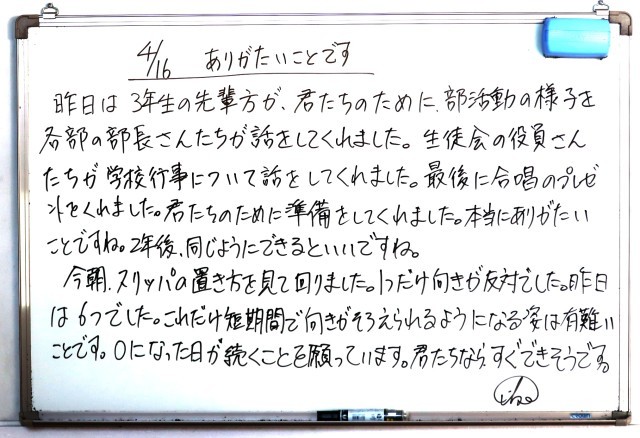 4/16 ありがたいことです
昨日は3年生の先輩方が、君たちのために、部活動の様子を
各部の部長さんたちが話をしてくれました。生徒会の役員さん
たちが学校行事について話をしてくれました。最後に合唱のプレゼ
ントをくれました。君たちのために準備をしてくれました。本当にありがたい
ことですね。2年後、同じようにできるといいですね。
今朝、スリッパの置き方を見て回りました。1つだけ向きが反対でした。昨日
は6つでした。これだけ短期間で向きがそろえられるようになる姿は有難い
ことです。0になった日が続くことを願っています。君たちなら、すぐできそうです。